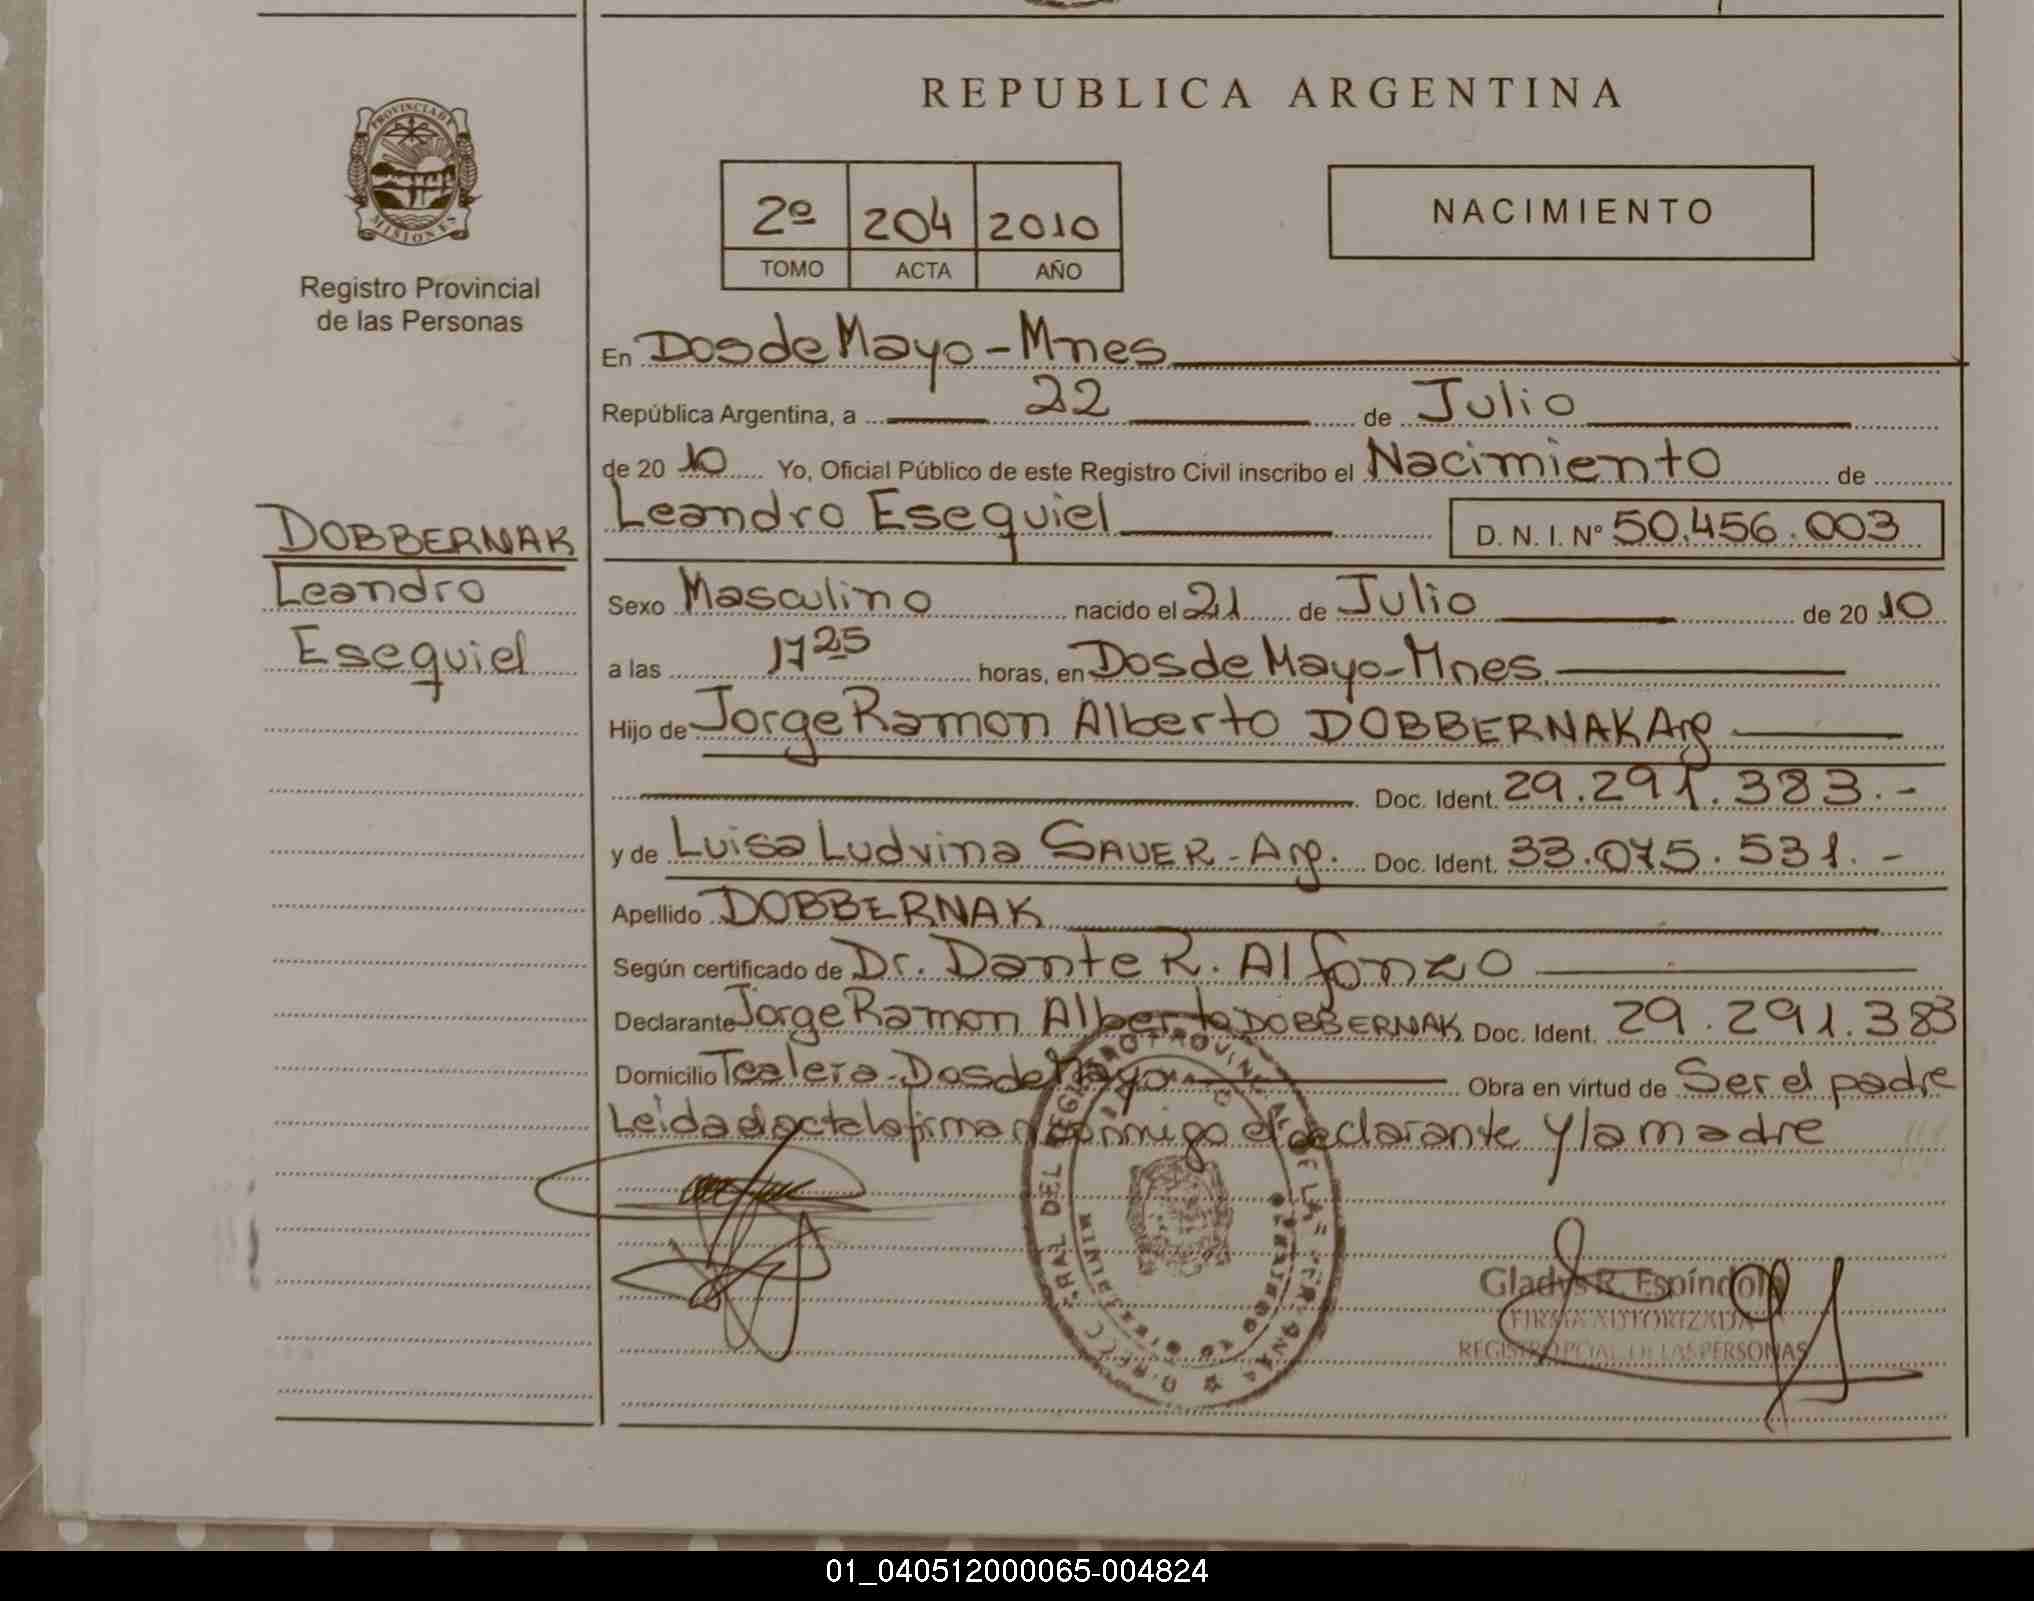 REPUBLICA ARGENTINA
PROVINCIA DE
MISIONES
Registro Provincial
de las Personas
2º 204 2010
TOMO ACTA AÑO
NACIMIENTO
En Dos de Mayo - Mnes
República Argentina, a 22 de Julio
de 20 10 Yo, Oficial Público de este Registro Civil inscribo el Nacimiento de
Leandro Esequiel D. N. I. Nº 50.456.003
DOBBERNAK
Leandro
Esequiel
Sexo Masculino nacido el 21 de Julio de 20 10
a las 17 25 horas, en Dos de Mayo - Mnes.
Hijo de Jorge Ramon Alberto DOBBERNAK Arg
Doc. Ident. 29.291.383.-
y de Luisa Ludvina SAUER - Arg. Doc. Ident. 33.075.531.-
Apellido DOBBERNAK
Según certificado de Dr. Dante R. Alfonzo
Declarante Jorge Ramon Alberto DOBBERNAK Doc. Ident. 29.291.383
Domicilio Tealera - Dos de Mayo Obra en virtud de Ser el padre
Leida el acta la firman conmigo el declarante y la madre
Gladys R. Espíndola
FIRMA AUTORIZADA
REGISTRO PCIAL. DE LAS PERSONAS
01_040512000065-004824